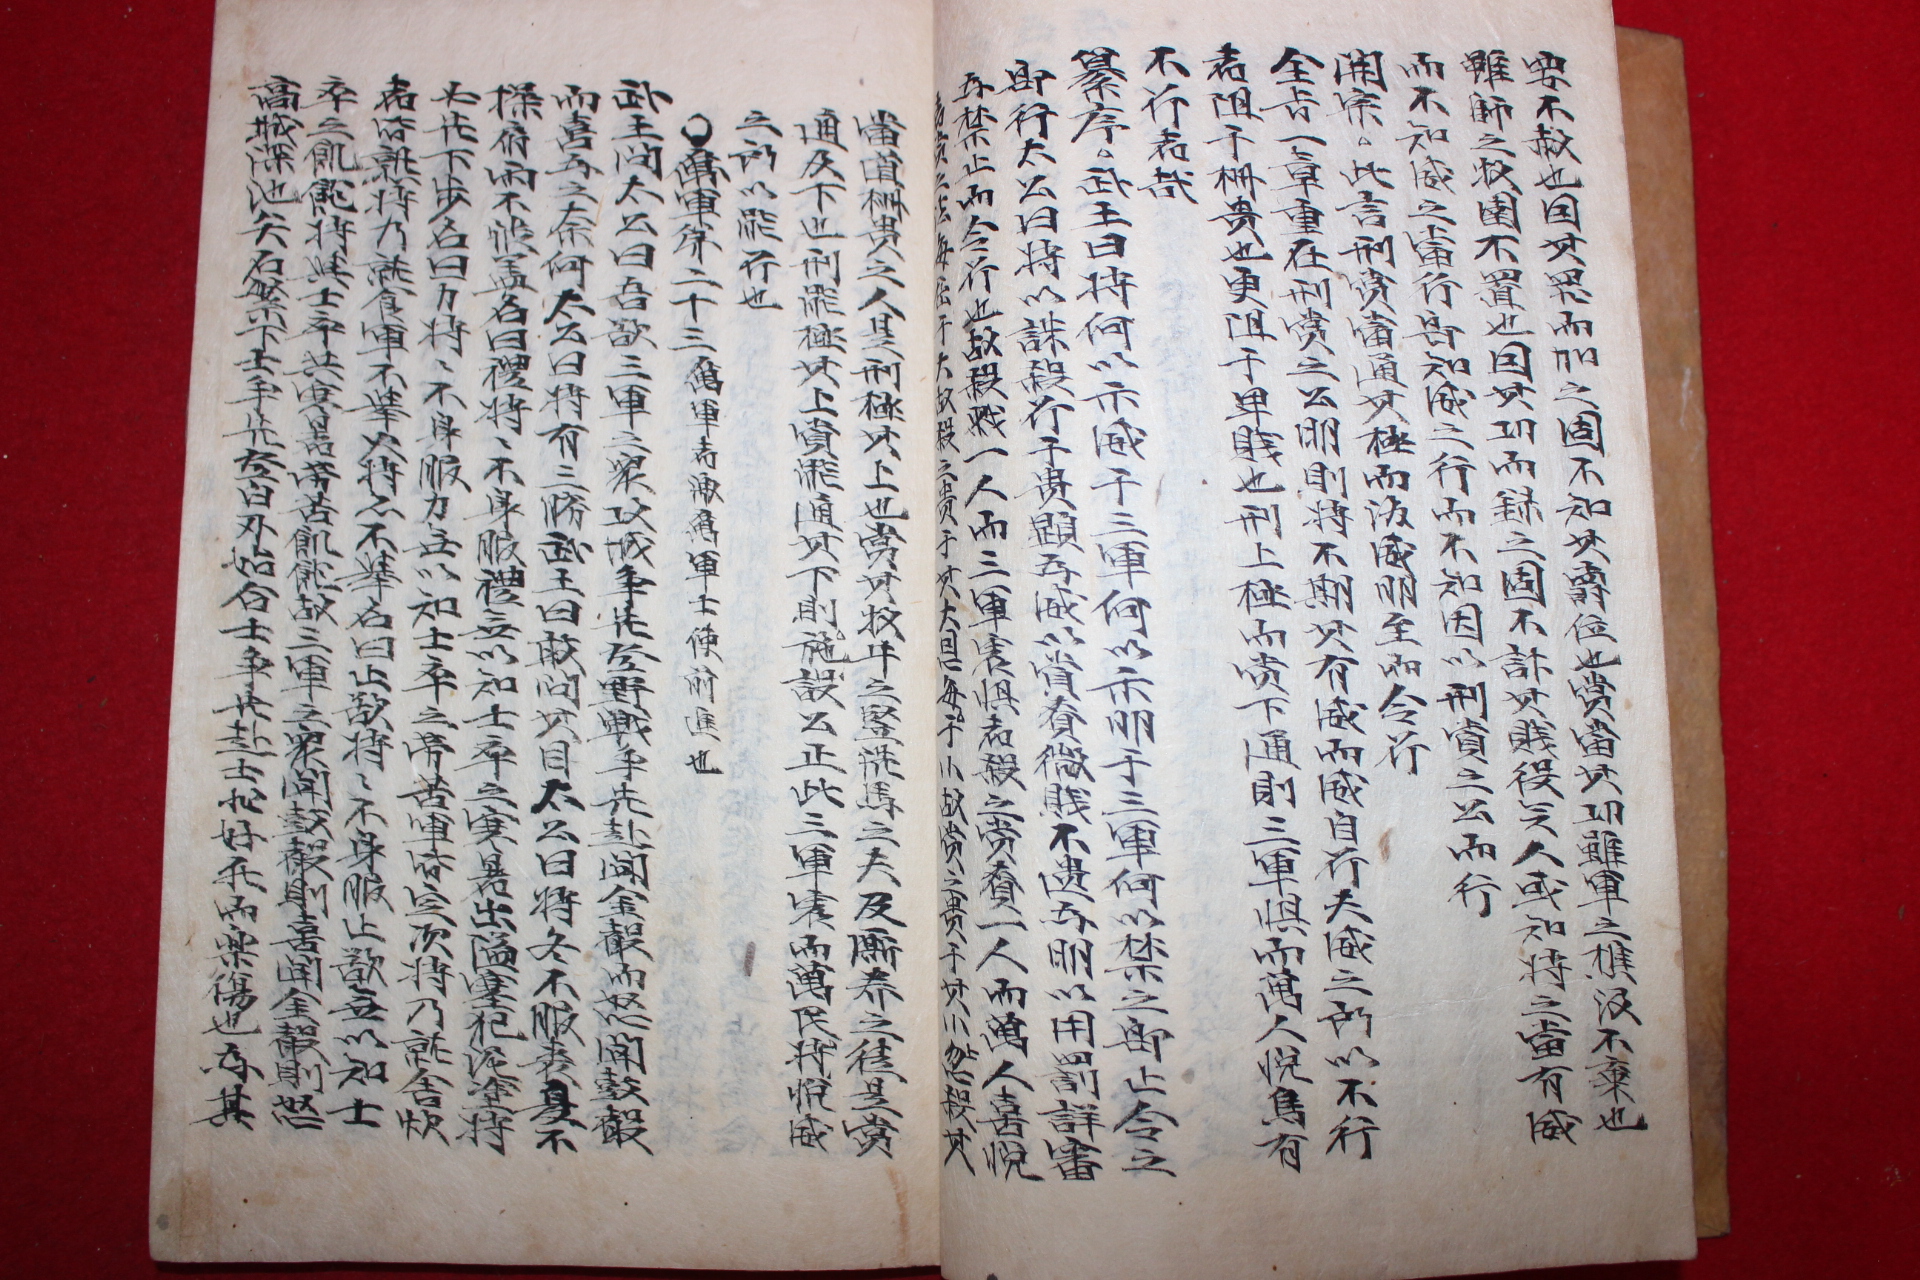 要不赦也因其罪而加之固不知其爵位也賞當其功雖軍之樵汲不棄也
雖師之牧圉不置也因其功而録之固不計其賤役矣人或知將之當有威
而不知威之當行啇知威之行而不知因以刑賞之公而行
開宗。此言刑賞當通其極而後威明至而令行
全旨一章重在刑賞之公明則將不期其有威而威自行夫威之所以不行
者阻于柵貴也更阻于卑賤也刑上極而賞下通則三軍惧而萬人悅焉有
不行者哉
纂序。武王曰將何以示威于三軍何以示明于三軍何以禁之即止令之
即行太公曰將以誅殺行于貴顯吾威以賞賚微賤不遺吾明以用罰詳審
吾禁止而令行也故殺戮一人而三軍害惧者殺之賞賚一人而萬人喜悅
者賞之法每在于大故殺之貴于其大因每于小故賞之貴于其小殺其
當道柵貴之人是刑極其上也賞其牧牛之竪洗馬之夫及厮养之徒是賞
通及下也刑能極其上賞能通其下則施設公正此三軍害而萬民將悅威
之所以能行也
勵軍第二十三 勵軍者激勵軍士使前進也
武王問太公曰吾欲三軍之衆攻城争先登野戰争先赴聞金聲而怒聞鼓聲
而喜爲之奈何太公曰將有三勝武王曰敢問其目太公曰將冬不服裘夏不
操扇雨不張盖名曰禮將〻不身服禮無以知士卒之寒暑出隘塞犯泥塗將
先下步名曰力將〻不身服力無以知士卒之勞苦軍皆定次將乃就舍炊
者皆熟將乃就食軍不擧火將亦不擧名曰止欲將〻不身服止欲無以知士
卒之飢飽將與士卒共寒暑勞苦飢飽故三軍之衆聞鼓聲則喜聞金聲則怒
高城深池矢石繁下士争先登白刃始合士争先赴士非好死而樂傷也爲其